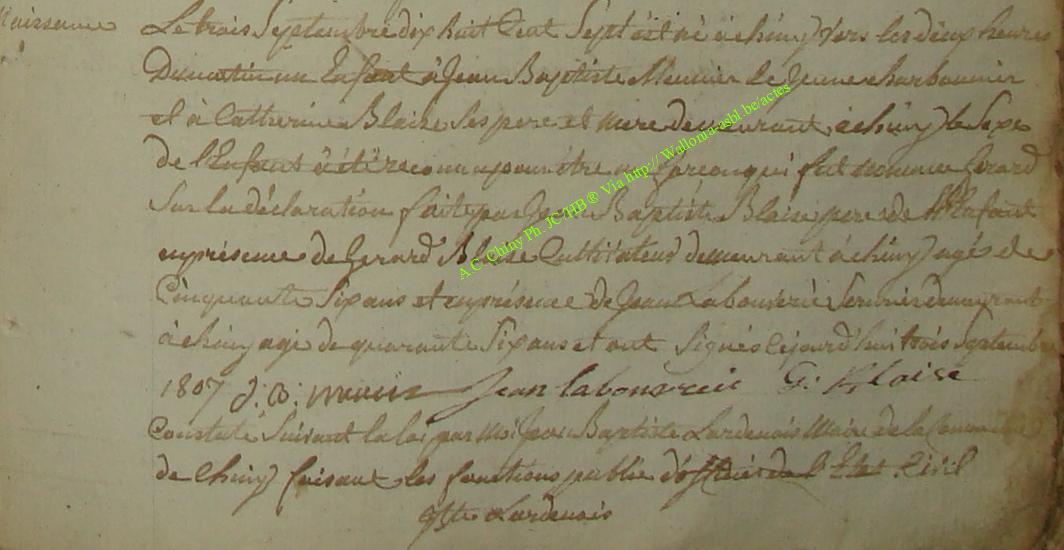 Naissance
Le trois Septembre dix huit Cent Sept est né à chiny Vers les deux heures
Du matin un Enfant à Jean Baptiste Meunier le Jeune charbonnier
et à Catherine Blaise Ses pere et mere demeurant à chiny le Sexe
de l'Enfant à été reconnu pour être un Garçon qui fut nommé Gerard
Sur la déclaration faite par Jean Baptiste Blaise pere de Enfant
en présence de Gerard Blaise Cultivateur demeurant à chiny agé de
Cinquante Six ans et en présence de Jean Labouverie demeurant
à chiny agé de quarante Six ans et ont Signés Cejourd'hui trois Septembre
1807 J. B. Jean labouverie G. Blaise
Constaté Suivant la loi par moi Jean Baptiste Lardenois Maire de la Commune
de Chiny faisant les fonctions public d'officier de l'Etat Civil
Lardenois
A.C. Chiny Ph. JC/HB ® Via http://Wallonia-asbl.be/actes